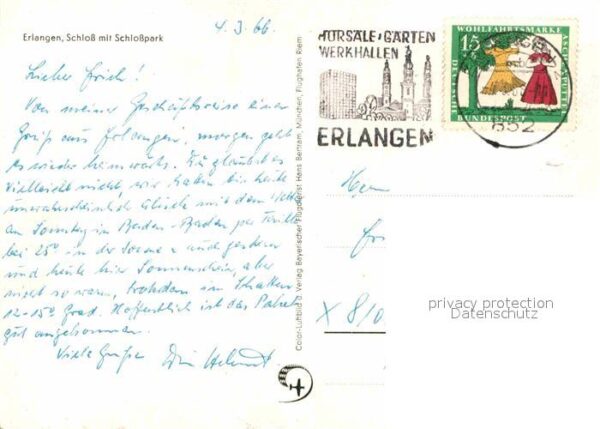 4.3.66.
Erlangen, Schloß mit Schloßpark
Lieber Erich!
Von meiner Geschäftsreise einen
Gruß aus Erlangen, morgen geht
es wieder heimwärts. Du glaubst es
vielleicht nicht, wir hatten bis heute
unwahrscheinlich Glück mit dem Wetter
am Sonntag in Baden-Baden
bei 25° in der Sonne und gestern
und heute hier Sonnenschein, aber
nicht so warm, trotzdem im Schatten
12-15° Grad. Hoffentlich ist das Paket
gut angekommen.
Viele Grüße Dein Helmut
Color-Luftbild u. Verlag Bayerischer Flugdienst Hans Bertram, München, Flughafen Riem
HÖRSÄLE·GÄRTEN
WERKHALLEN
ERLANGEN
852
15
WOHLFAHRTSMARKE
ASCHENPUTTEL
DEUTSCHE
BUNDESPOST
Herrn
X 810
privacy protection
Datenschutz